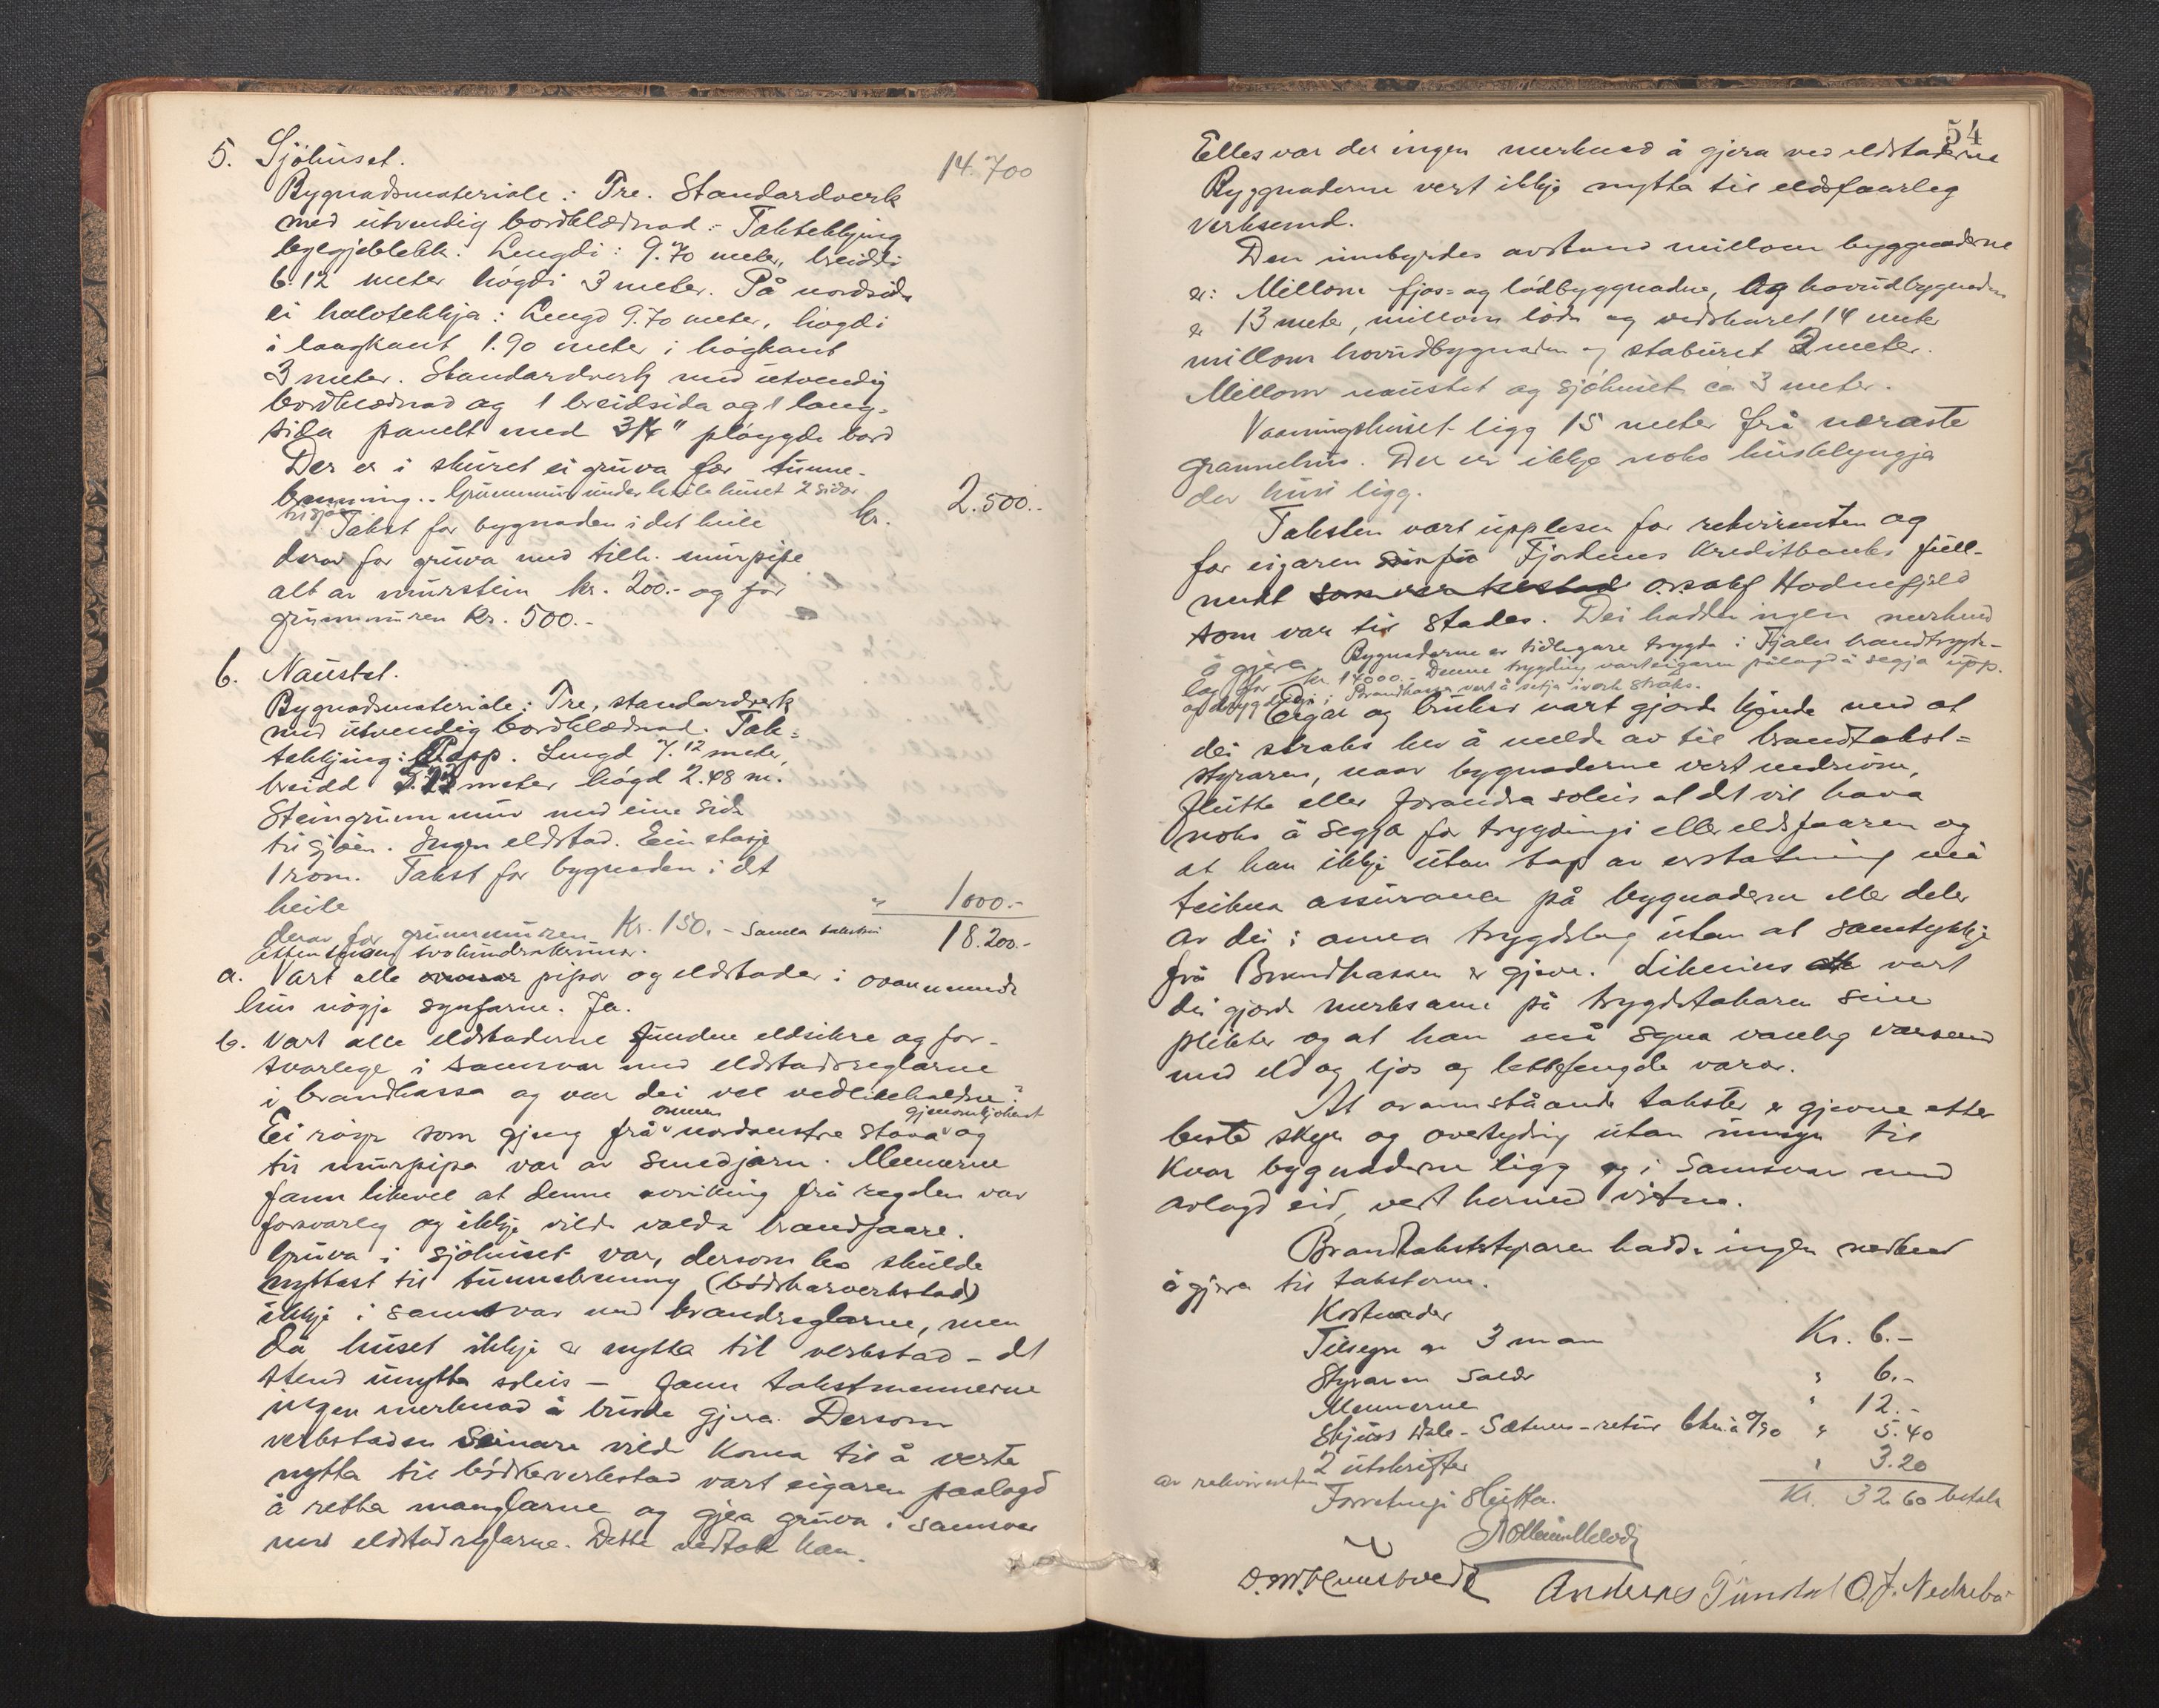 14.700
5. Sjöhuset.
Bygnadsmateriale: Tre. Standardverk
med utvendig bordklædnad. Taktekkjing
bylgjeblekk. Lengdi: 9.70 meter, breiddi
6.12 meter högdi 3 meter. På nordsida
ei halvtekkja: Lengd 9.70 meter, högdi
i laagkant 1.90 meter i högkant
3 meter. Standardverk med utvendig
bordklædnad og 1 breidsida og 1 lang-
sida panelt med 3/4" pløygde bord
Der er i skuret ei gruva for tunne-
brenning. Grunnmur under heile huset 2 sidor
til sjøen
Takst for bygnaden i det heile kr. 2.500.-
derav for gruva med tilh. murpipe
alt av murstein kr. 200.- og for
grunnmuren kr. 500.-
6. Naustet.
Bygnadsmateriale: Tre, standardverk
med utvendig bordklædnad. Tak-
tekkjing: Papp. Lengd 7.12 meter,
breidd meter högd 2.48 m.
Steingrunnmur med eine sida
til sjøen. Ingen eldstad. Ein etasje
1 rom. Takst for bygnaden i det
heile " 1000.-
derav for grunnmuren Kr. 150.- Samla taksten 18.200.-
Atten tusen tvohundra kronor.
a. Vart alle pipor og eldstader i ovannemnde
hus nøgje synfarne. Ja.
b. Vart alle eldstaderne fundne eldsikre og for-
svarlege i samsvar med eldstadreglarne
i brandkassa og var dei vel vedlikehaldne?
Ei røyr som gjeng frå omnen nordaustre stova gjenom kjøkenet og
til murpipa var av smedjarn. Mennerne
fann likevel at denne avviking frå regelen var
forsvarleg og ikkje vilde valda brandfaare.
Gruva i sjöhuset var, dersom ho skulde
nyttast til tunnebrenning (bødkarverkstad)
ikkje i samsvar med brandreglarne, men
då huset ikkje er nytta til verkstad – det
stend unytta soleis – fann takstmennerne
ingen merknad å burde gjera. Dersom
verkstaden seinare vilde koma til å verta
nytta til bödkarverkstad vart eigaren paalagd
å retta manglarne og gjera gruva i samsvar
med eldstadreglarne. Dette vedtok han.
54
Elles var der ingen merknad å gjera ved eldstaderne
Byggnaderne vert ikkje nytta til eldsfaarleg
verksemd.
Den innbyrdes avstand millom byggnaderne
er: Millom fjos- og lödbyggnadne, og hovudbygnaden
er 13 meter, millom löda og vedskuret 14 meter
millom hovudbygnaden og staburet 2 meter.
Millom naustet og sjöhuset ca 3 meter.
Vaaningshuset ligg 15 meter frå næraste
grannehus. Der er ikkje noko husklyngja
der husi ligg.
Taksten vart upplesen for rekvirenten og
for eigaren Fjordenes Kreditbanks full-
mekt o.r.sakf Hodnefjeld
som var til stades. Dei hadde ingen merknad
å gjera. Bygnaderne er tidlegare trygda i Fjaler brandtrygde-
lag for kr. 14000.- Denne trygding vart eigaren pålagd å segja upp.
og trygdingi i Brandkassa vert å setja i verk straks.
Eigar og brukar vart gjorde kjende med at
dei straks hev å melda av til brandtakst-
styraren, naar bygnaderne vert nedrivne,
flutte eller forandra soleis at det vil hava
noko å segja for trygdingi eller eldsfaaren og
at han ikkje utan tap av erstatning må
teikna assurance på bygnaderne eller deler
av dei i anna trygdelag utan at samtykkje
frå Brandkassen er gjeve. Likeeins vart
dei gjorde merksame på trygdetakaren sine
plikter og at han må syna vanleg varsemd
med eld og ljos og lettfengde varor.
At ovannståande takster er gjevne etter
beste skyn og overtyding utan umsyn til
kvar bygnaderne ligg og i samsvar med
avlagd eid, vert hermed vitna.
Brandtakststyraren hadde ingen merknad
å gjera til taksterne.
Kostnader
Tilsegn av 3 mann Kr. 6.-
Styraren salær " 6.-
Mennerne " 12.-
Skjuss Dale - Sætenes - retur 6 km à 0/90 " 5.40
2 utskrifter " 3.20
Kr. 32.60 betalt
av rekvirenten
Forretningi slutta.
Anders Tundal O. J. Nedrebø